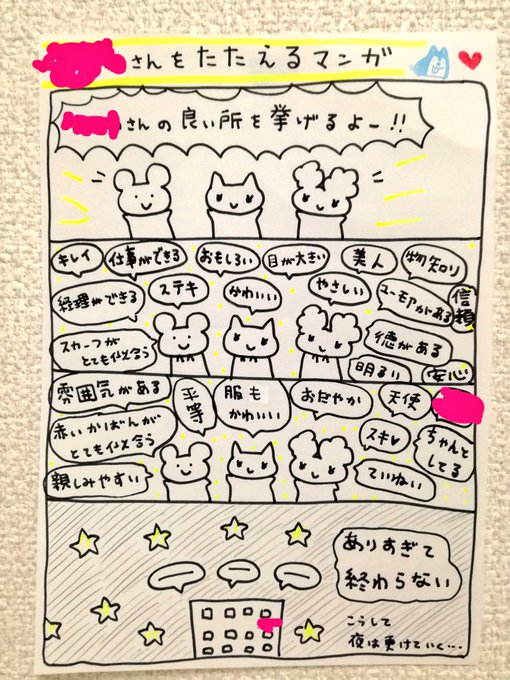 さんをたたえるマンガ
さんの良い所を挙げるよー!!
キレイ
仕事ができる
おもしろい
目が大きい
美人
物知り
経理ができる
ステキ
かわいい
やさしい
ユーモアがある
信頼
スカーフが
とても似合う
徳がある
明るい
安心
雰囲気がある
平等
服も
かわいい
おだやか
天使
赤いかばんが
とても似合う
スキ♥
ちゃんと
してる
親しみやすい
ていねい
ありすぎて
終わらない
こうして
夜は更けていく…